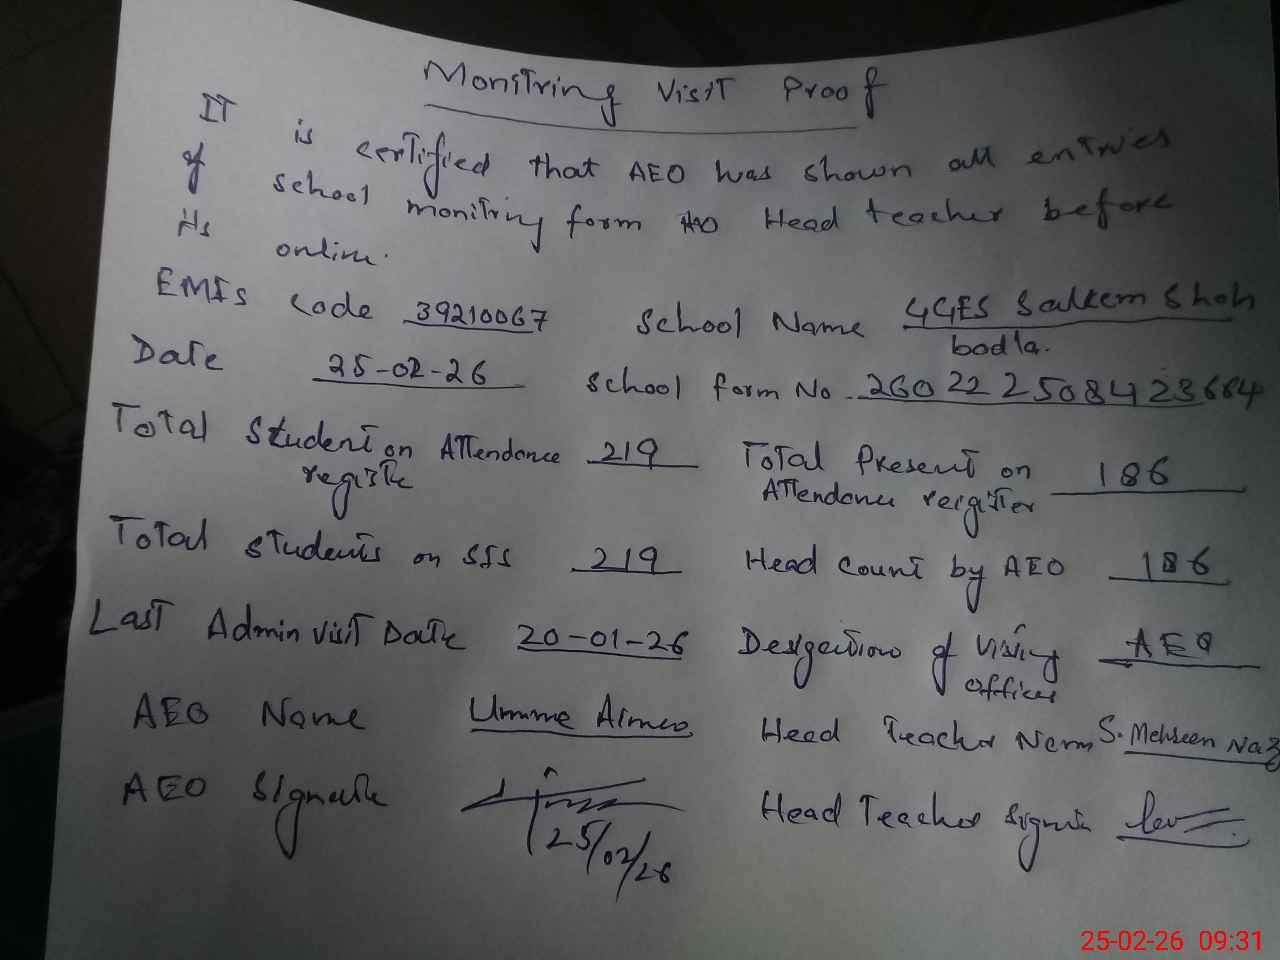 Monitring Visit Proof
IT is certified that AEO was shown all entries
of school monitring form to Head teacher before
its online.
EMIS Code 39210067 School Name GGES Saleem Shah
bodla.
Date 25-02-26 School form No 260222508423664
Total Student on Attendance 219 Total Present on 186
registe Attendance reigister
Total students on SIS 219 Head Count by AEO 186
Last Admin visit Date 20-01-26 Desgection of Visiting AEO
Officer
AEO Name Umme Aimen Head Teacher Name S. Mehreen Naz
AEO Signate Head Teacher Signin
25/02/26
25-02-26 09:31